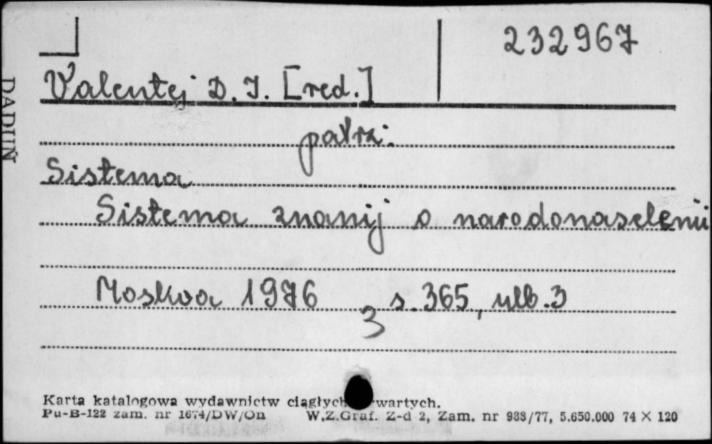 232967
Valentej D. I. [red.]
patrz:
Sistema
Sistema znanij o narodonaselenii
Moskva 1976 s. 365, nlb. 3
3
Karta katalogowa wydawnictw ciągłych zwartych.
Pu-B-122 zam. nr 1674/DW/On W.Z.Graf. Z-d 2, Zam. nr 988/77, 5.650.000 74 × 120
DADUŃ